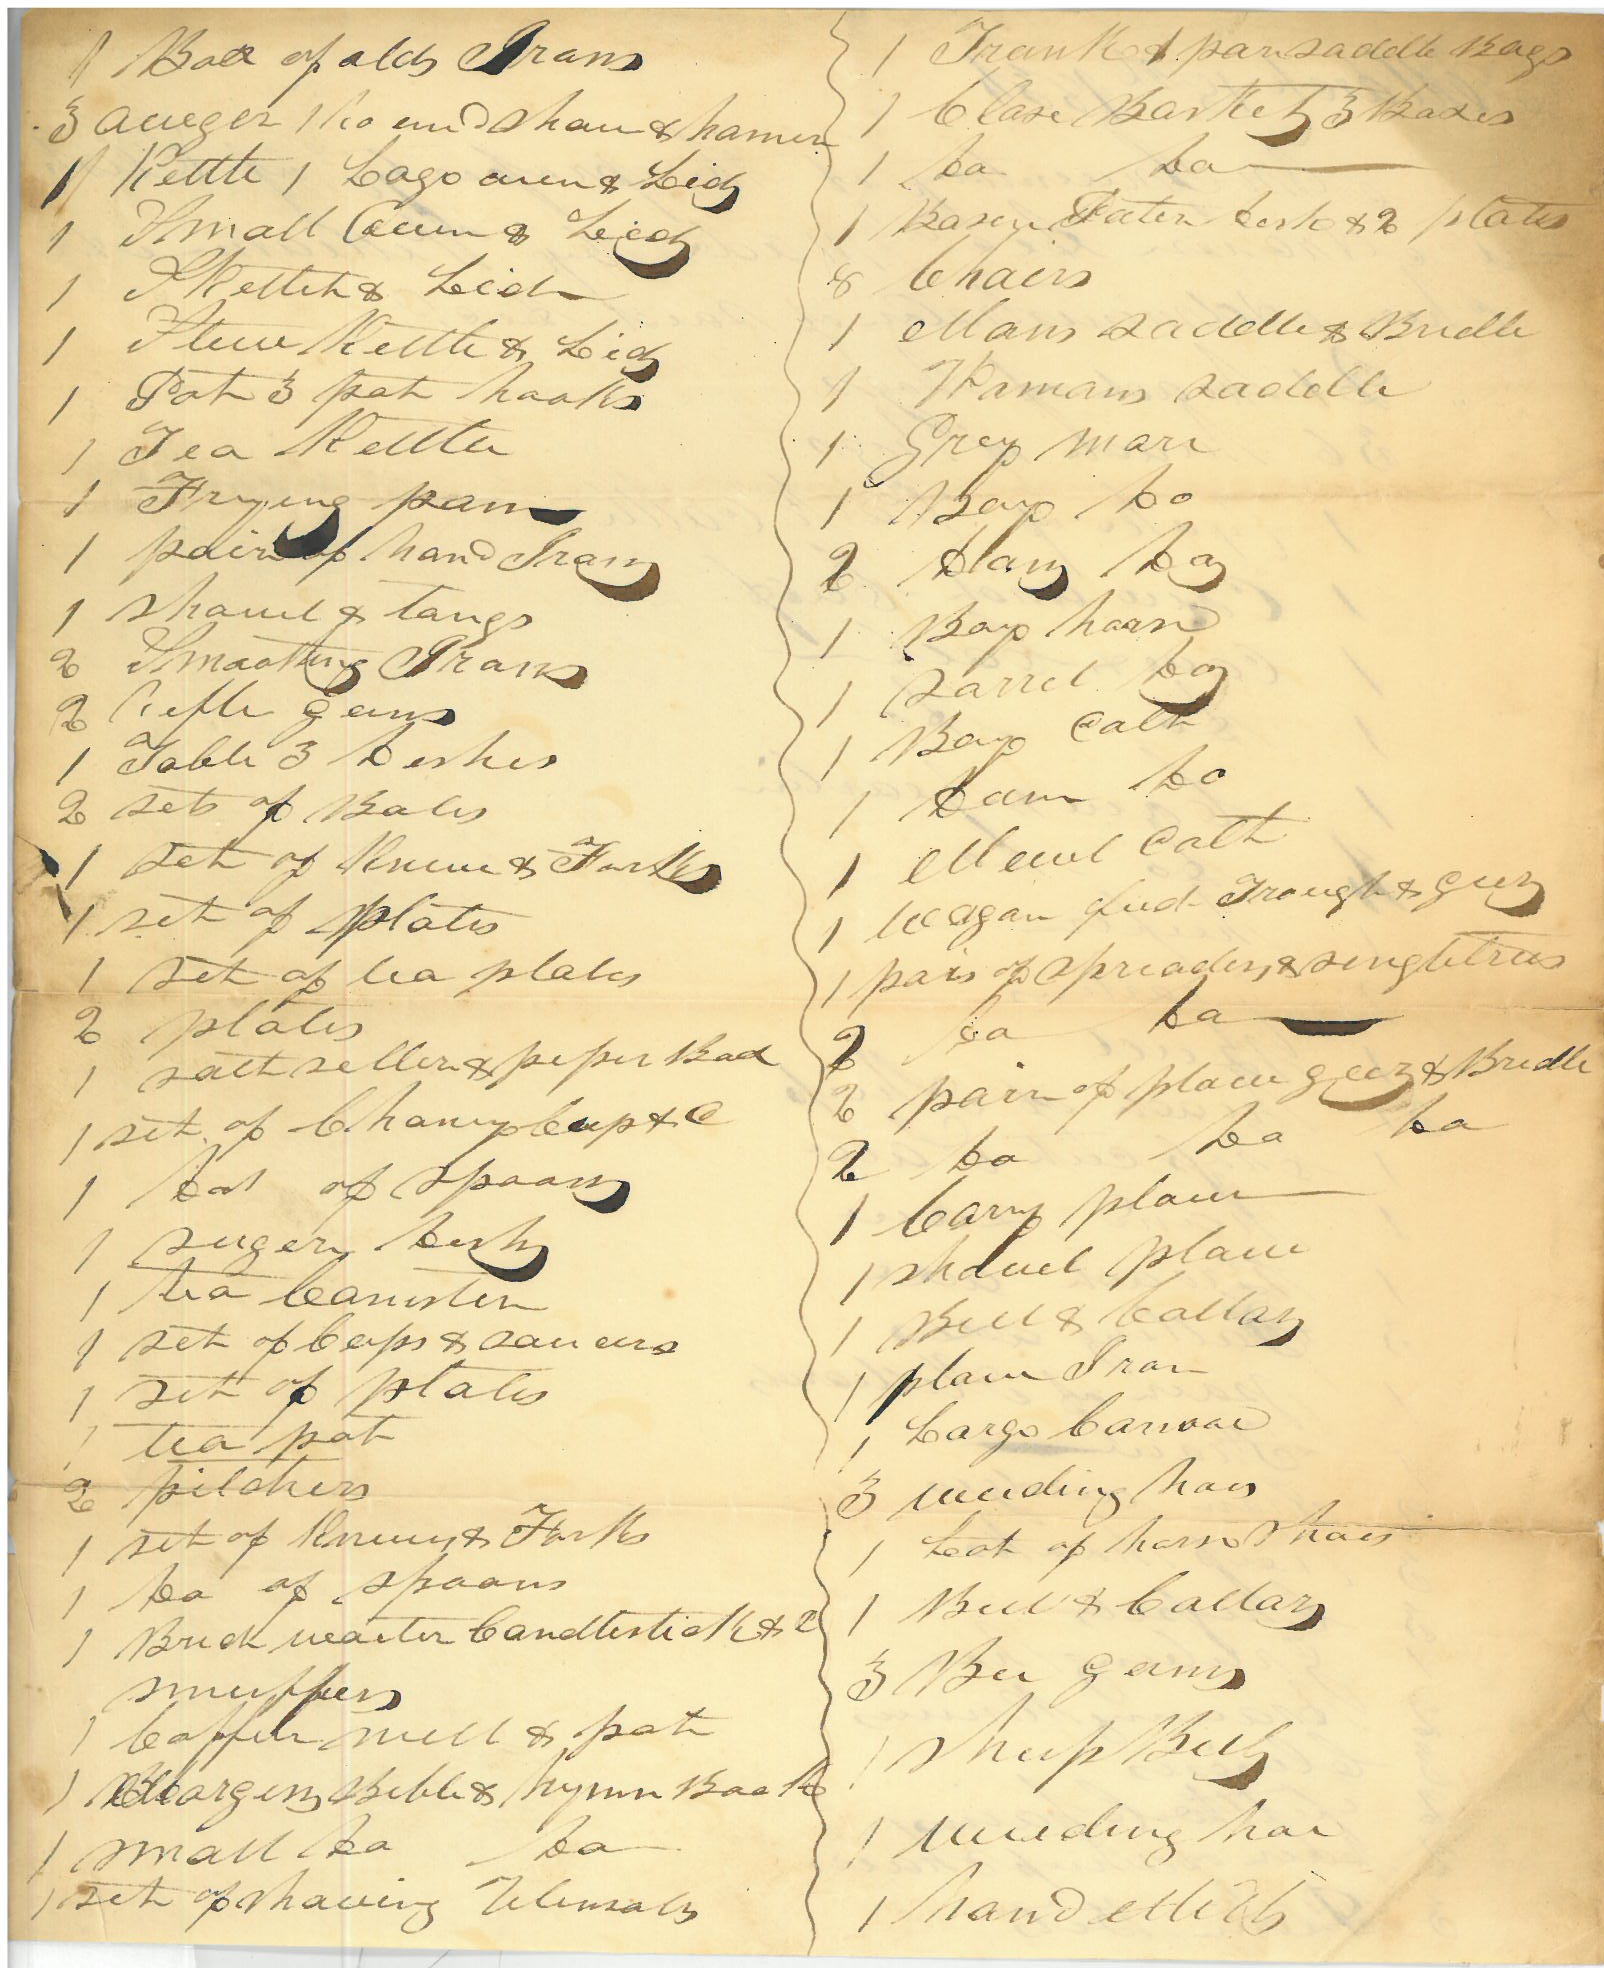 1 Box of olds Irons
3 aueger 1 Round Shau & hamer
1 Kettle 1 Large oven & Lid
1 Small Ouen & Lid
1 Skellet & Lid
1 Stue Kettle & Lid
1 Pot 3 pot hooks
1 Tea Kettle
1 Frying pan
1 pair of hand Irons
1 shovel & tongs
2 Smoothing Irons
2 Rifle guns
1 Table 3 Deshes
2 sets of Boles
1 set of Knives & Forks
1 set of plates
1 set of tea plates
2 plates
1 salt seller & peper Box
1 set of Chany Cup & C
1 Lot of spoons
1 suger Desh
1 tea Canister
1 set of Cups & saucers
1 set of plates
1 tea pot
2 pitchers
1 set of Knives & Forks
1 Do of spoons
1 Bred waiter Candlestick & C
snuffers
1 Coffee mill & pot
1 Large Bible & hymn Book
1 small Do Do
1 set of shaving Utensals
1 Trunk & 1 par saddle Bags
1 Close Basket 3 Boxes
1 Do Do
1 Basen Platen Desh & 2 plates
8 Chairs
1 Mans saddle & Bridle
1 Womans saddle
1 Grey mare
1 Bay Do
2 Dany Do
1 Bay horse
1 sorrel Do
1 Bay Colt
1 Dam Do
1 Meul Colt
1 Wagon feed Trough & geer
1 pair of spreaders & singletrees
2 Do Do
2 pair of plow geer & Bridle
2 Do Do Do
1 Cary plow
1 shovel plow
1 Bell & Collar
1 plow Iron
1 Large Canoe
3 weeding hoes
1 Lot of horse Shoes
1 Bell & Collar
3 Bee gums
1 sheep Bell
1 weeding hoe
1 hand Mill